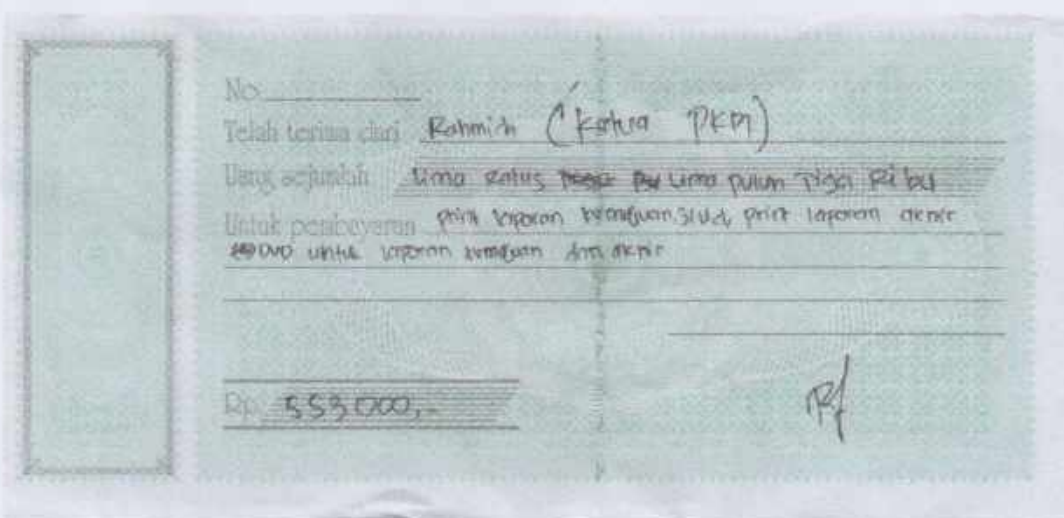 No.
Telah terima dari Rahmich (Ketua PKM)
Uang sejumlah Lima Ratus Lima puluh Tiga Ribu
Untuk pembayaran print laporan kemajuan, print laporan akhir
DVD untuk laporan kemajuan dan akhir
Rp. 553.000,-